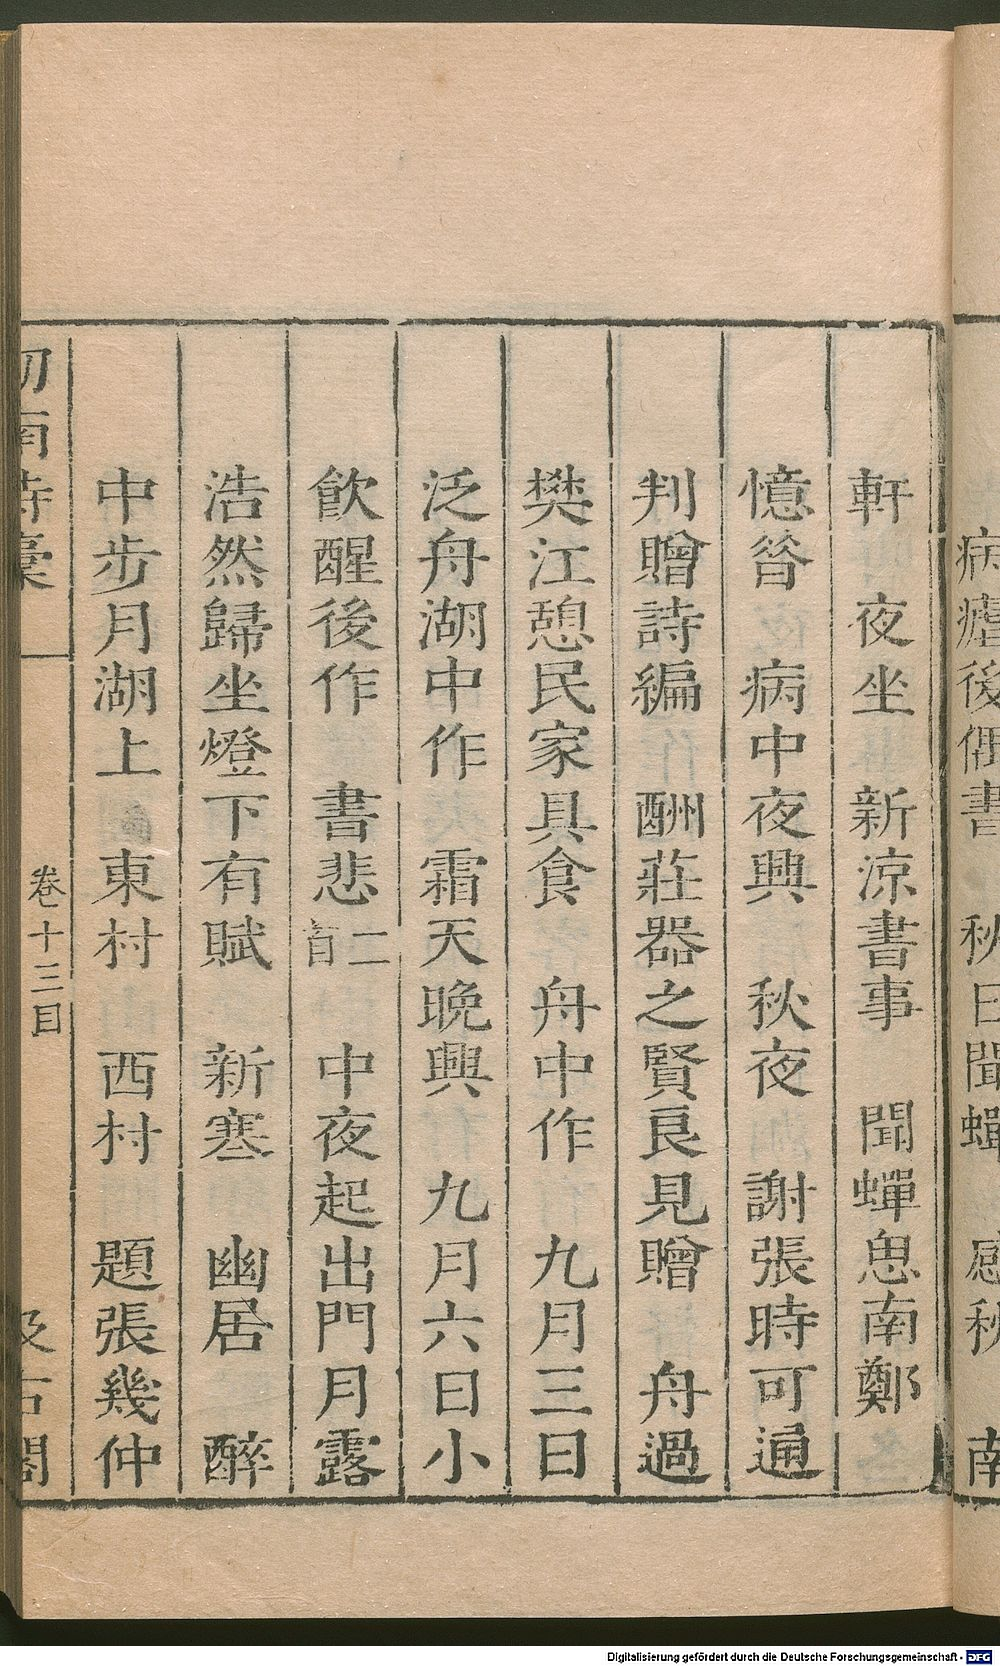 病瘧後偶書　秋日聞蟬　感秋　南
軒　夜坐　新涼書事　聞蟬思南鄭
憶昝　病中夜興　秋夜　謝張時可通
判贈詩編　酬莊器之賢良見贈　舟過
樊江憩民家具食　舟中作　九月三日
泛舟湖中作　霜天晚興　九月六日小
飲醒後作　書悲二首　中夜起出門月露
浩然歸坐燈下有賦　新寒　幽居　醉
中步月湖上　東村　西村　題張幾仲
劒南詩稾　卷十三目　汲古閣
Digitalisierung gefördert durch die Deutsche Forschungsgemeinschaft - DFG